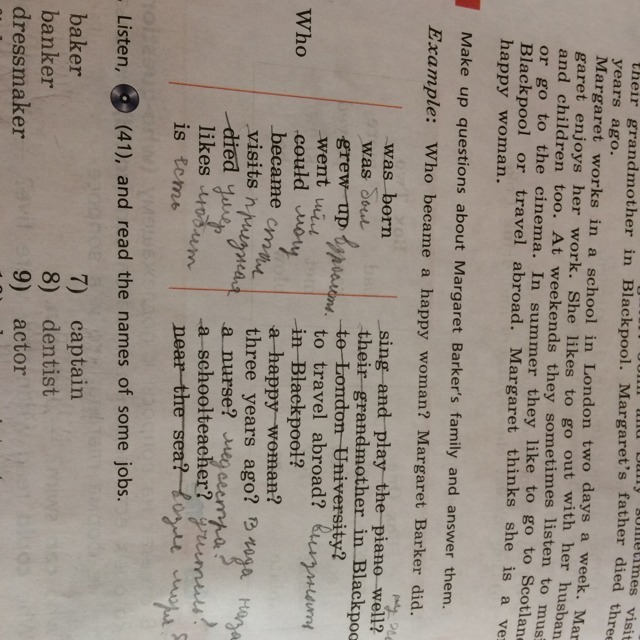 their grandmother in Blackpool. Margaret's father died three
years ago.
Margaret works in a school in London two days a week. Mar
garet enjoys her work. She likes to go out with her husban
and children too. At weekends they sometimes listen to mus
or go to the cinema. In summer they like to go to Scotlan
Blackpool or travel abroad. Margaret thinks she is a ve
happy woman.
Make up questions about Margaret Barker's family and answer them.
Example: Who became a happy woman? Margaret Barker did.
Who
was born
was был
grew up
went
could могу
became стала
visits
died умер
likes любит
is есть
sing and play the piano well?
their grandmother in Blackpoo
to London University?
to travel abroad?
in Blackpool?
a happy woman?
three years ago? 3 года наза
a nurse? медсестра?
a schoolteacher?
near the sea? возле моря
Listen, (41), and read the names of some jobs.
baker
banker
dressmaker
7) captain
8) dentist
9) actor